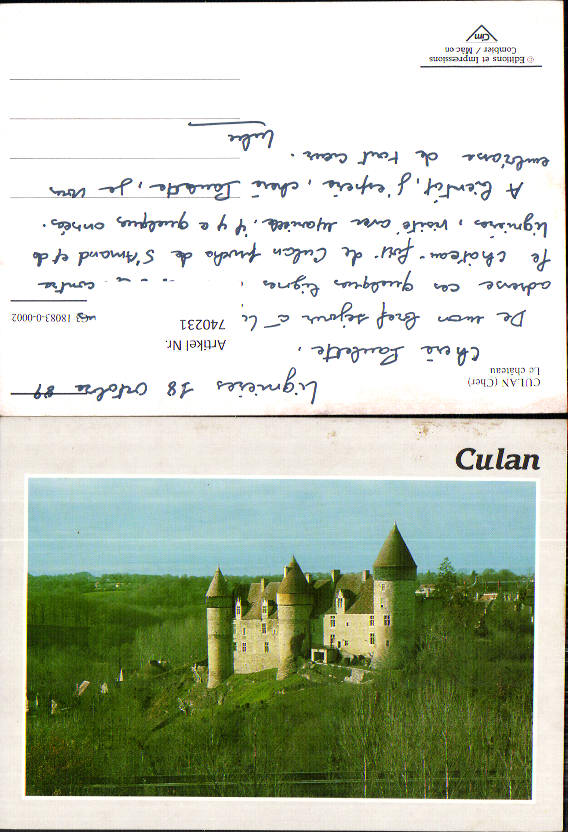 CULAN (Cher)
Le château
Lignières 18 Octobre 89
Chère Paulette,
De mon bref séjour à Li
adresse ces quelques lignes
contre
le château-fort de Culan proche de St Amand et de
Lignières, visité avec il y a quelques années.
A bientôt, j'espère, chère Paulette, je vous
embrasse de tout cœur.
Artikel Nr.
740231
18083-0-0002
© Editions et Impressions
Combier / Mâcon
Cim
Culan